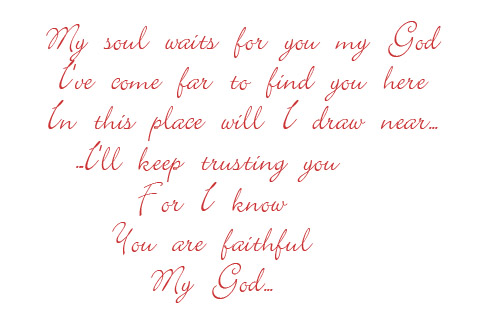 My soul waits for you my God
I've come far to find you here
In this place will I draw near...
...I'll keep trusting you
For I know
You are faithful
My God...